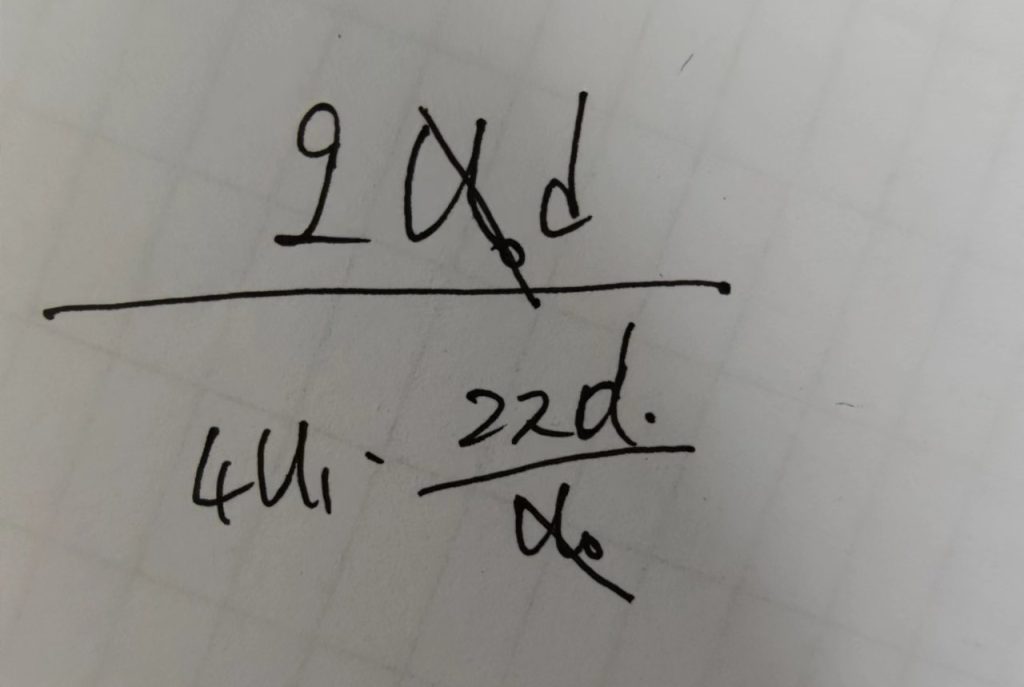 2α₀d
4U₁ · 2πd.
α₀